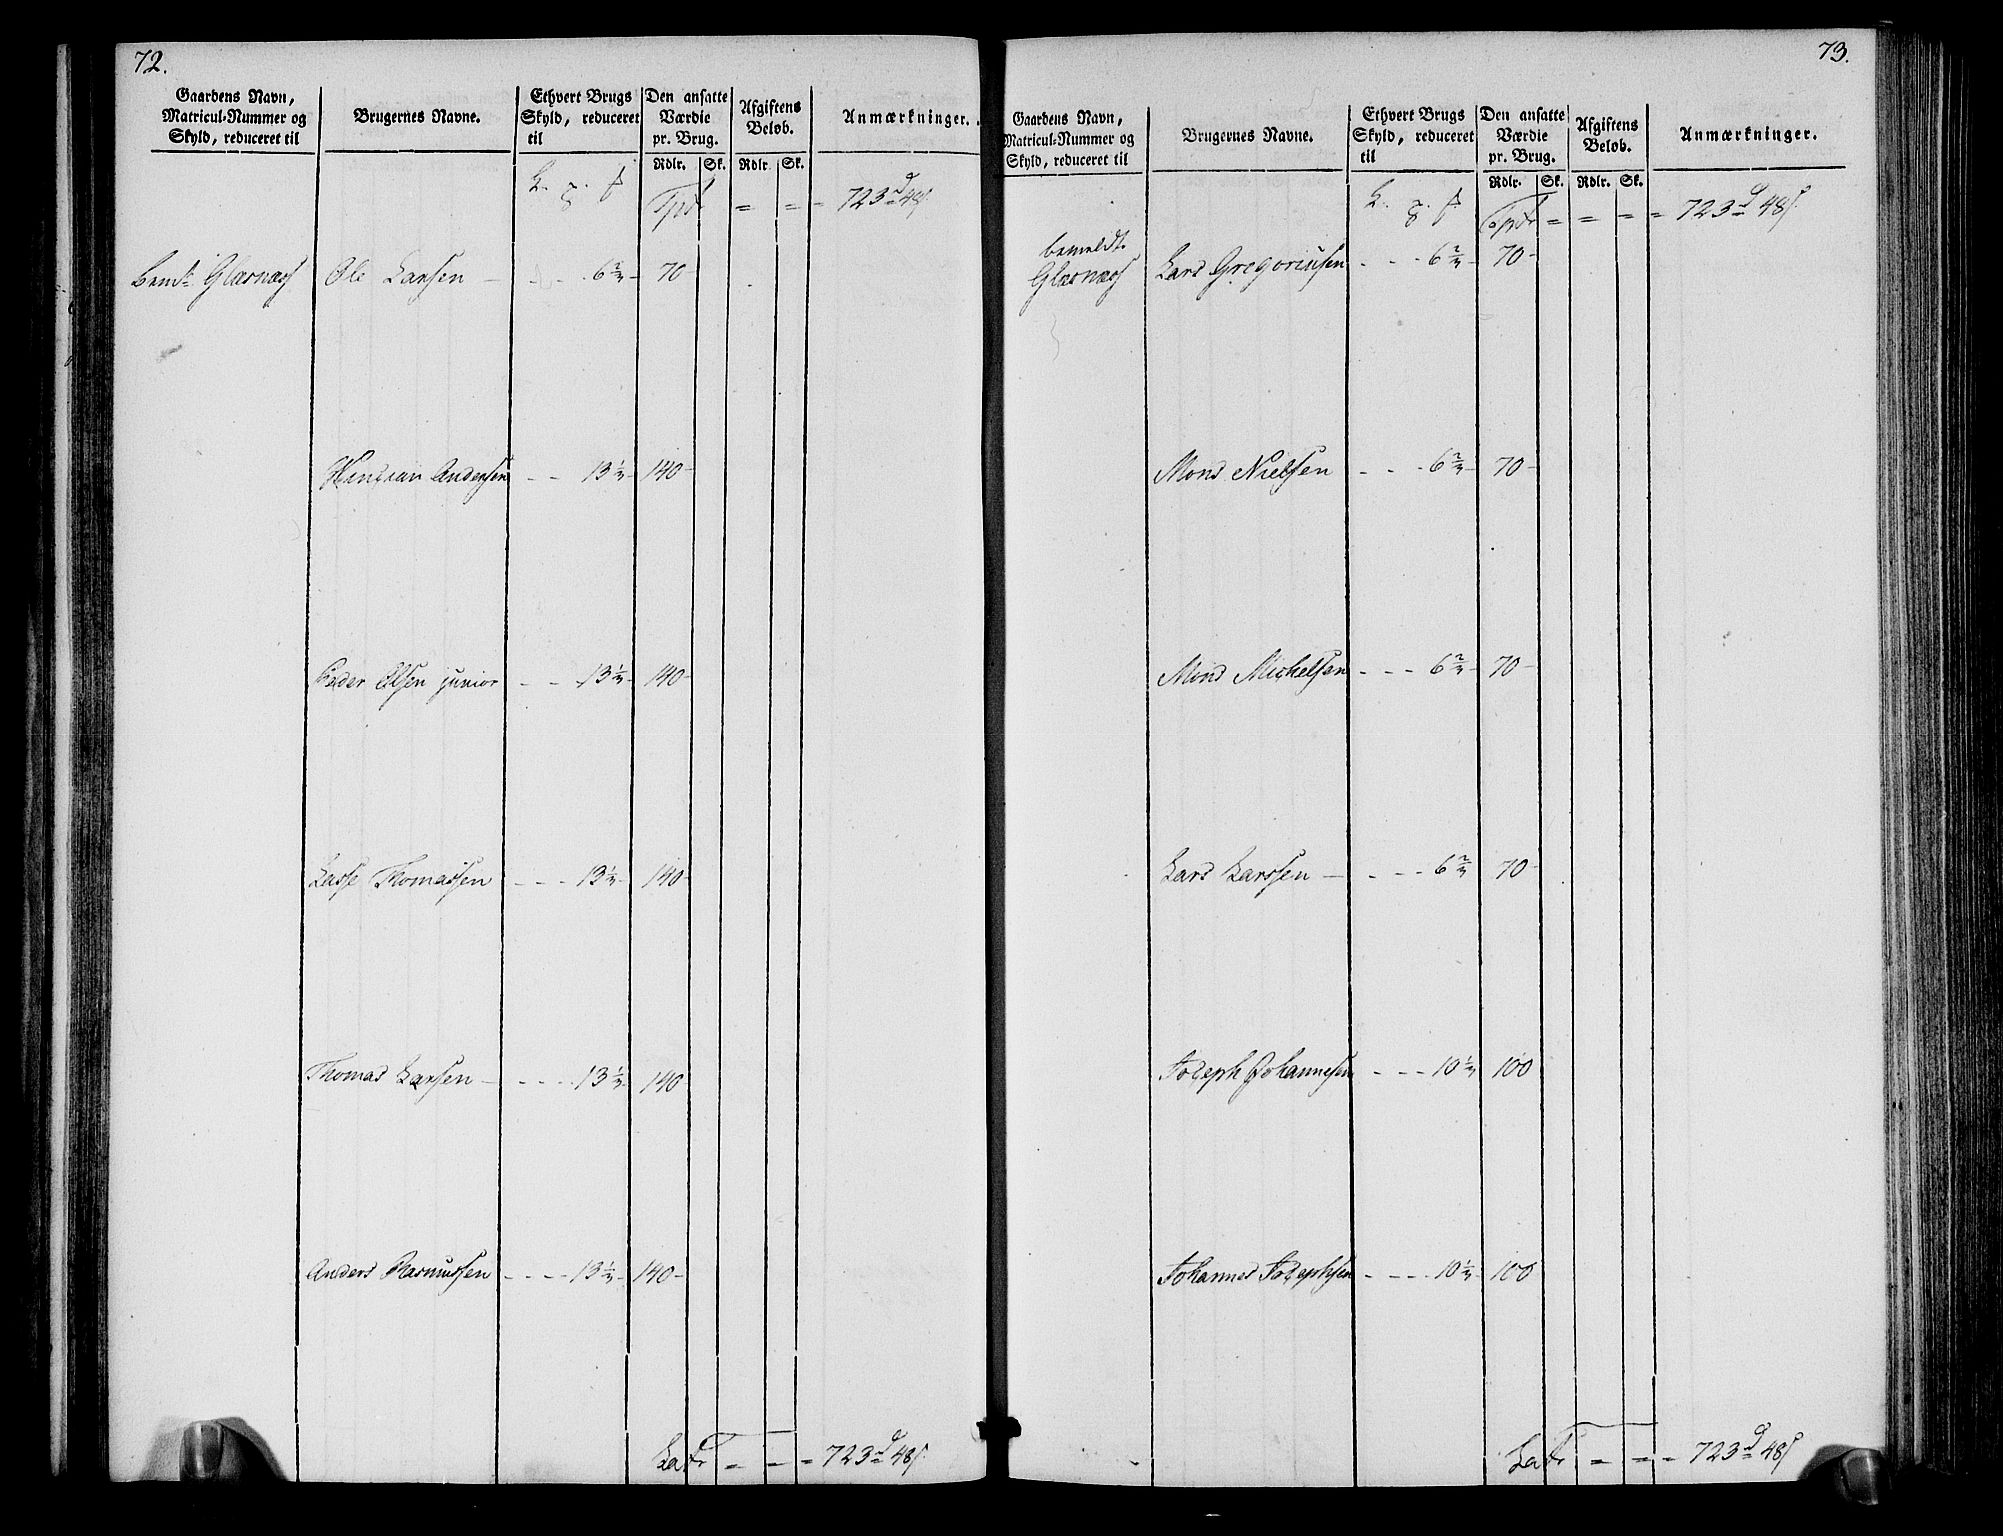 72.
Gaardens Navn,
Matricul-Nummer og
Skyld, reduceret til
Brugernes Navne.
Ethvert Brugs
Skyld, reduceret
til
Den ansatte
Værdie
pr. Brug.
Rdlr. Sk.
Afgiftens
Beløb.
Rdlr. Sk.
Anmærkninger.
Tpt = = = 723 d 48 s.
Bem.te Glæsnæss Ole Larsen - - - 6 2/3 - 70 -
Andersen - - 13 1/3 - 140 -
Peder Olsen junior - - 13 1/3 - 140 -
Lasse Thomassen - - - 13 1/3 - 140 -
Thomas Larsen - - - - 13 1/3 - 140 -
Anders Rasmussen - - - - 13 1/3 - 140 -
Latr = = = 723 d 48 s.
73.
Gaardens Navn,
Matricul-Nummer og
Skyld, reduceret til
Brugernes Navne.
Ethvert Brugs
Skyld, reduceret
til
Den ansatte
Værdie
pr. Brug.
Rdlr. Sk.
Afgiftens
Beløb.
Rdlr. Sk.
Anmærkninger.
Tpt = = = = 723 d 48 s.
bemeldt.
Glæsnæss Lars Gregoriusen - - - 6 2/3 - 70 -
Mons Nielsen - - - 6 2/3 - 70 -
Mons Michelsen - - - 6 2/3 - 70 -
Lars Larssen - - - 6 2/3 70 -
Joseph Johannesen - - - 10 1/3 - 100
Johannes Josephsen - - - - 10 1/3 - 100
Latr = = = 723 d 48 s